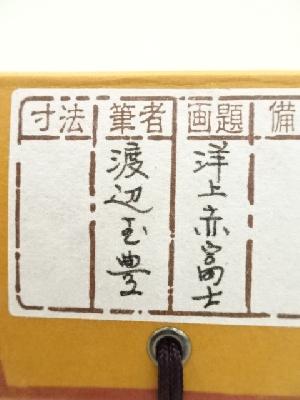 備
画題
洋上赤富士
筆者
渡辺玉豊
寸法